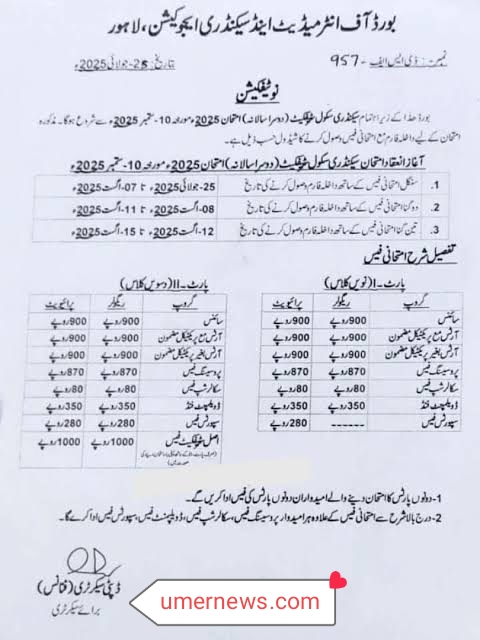 بورڈ آف انٹرمیڈیٹ اینڈ سیکنڈری ایجوکیشن، لاہور
نمبر: ڈی ایس ایف - 957
تاریخ: 25-جولائی 2025ء
نوٹیفکیشن
بورڈ ھذا کے زیر اہتمام سیکنڈری سکول سرٹیفکیٹ (دوسرا سالانہ) امتحان 2025ء مورخہ 10-ستمبر 2025ء سے شروع ہوگا۔ مذکورہ
امتحان کے لیے داخلہ فارم مع امتحانی فیس وصول کرنے کا شیڈول حسب ذیل ہے۔
آغاز انعقاد امتحان سیکنڈری سکول سرٹیفکیٹ (دوسرا سالانہ) امتحان 2025ء مورخہ 10-ستمبر 2025ء
1. سنگل امتحانی فیس کے ساتھ داخلہ فارم وصول کرنے کی تاریخ 25-جولائی 2025ء تا 07-اگست 2025ء
2. دوگنا امتحانی فیس کے ساتھ داخلہ فارم وصول کرنے کی تاریخ 08-اگست 2025ء تا 11-اگست 2025ء
3. تین گنا امتحانی فیس کے ساتھ داخلہ فارم وصول کرنے کی تاریخ 12-اگست 2025ء تا 15-اگست 2025ء
تفصیل شرح امتحانی فیس
پارٹ-I (نویں کلاس)
گروپ ریگولر پرائیویٹ
سائنس 900روپے 900روپے
آرٹس مع پریکٹیکل مضمون 900روپے 900روپے
آرٹس بغیر پریکٹیکل مضمون 900روپے 900روپے
پروسیسنگ فیس 870روپے 870روپے
سکالرشپ فیس 80روپے 80روپے
ڈویلپمنٹ فنڈ 350روپے 350روپے
سپورٹس فیس ------ 280روپے
پارٹ-II (دسویں کلاس)
گروپ ریگولر پرائیویٹ
سائنس 900روپے 900روپے
آرٹس مع پریکٹیکل مضمون 900روپے 900روپے
آرٹس بغیر پریکٹیکل مضمون 900روپے 900روپے
پروسیسنگ فیس 870روپے 870روپے
سکالرشپ فیس 80روپے 80روپے
ڈویلپمنٹ فنڈ 350روپے 350روپے
سپورٹس فیس 280روپے 280روپے
اصل سرٹیفکیٹ فیس 1000روپے 1000روپے
1- دونوں پارٹس کا امتحان دینے والے امیدواران دونوں پارٹس کی فیس ادا کریں گے۔
2- درج بالا شرح سے امتحانی فیس کے علاوہ ہر امیدوار پروسیسنگ فیس، سکالرشپ فیس، ڈویلپمنٹ فیس، سپورٹس فیس ادا کرے گا۔
ڈپٹی سیکرٹری (فنانس)
برائے سیکرٹری
umernews.com